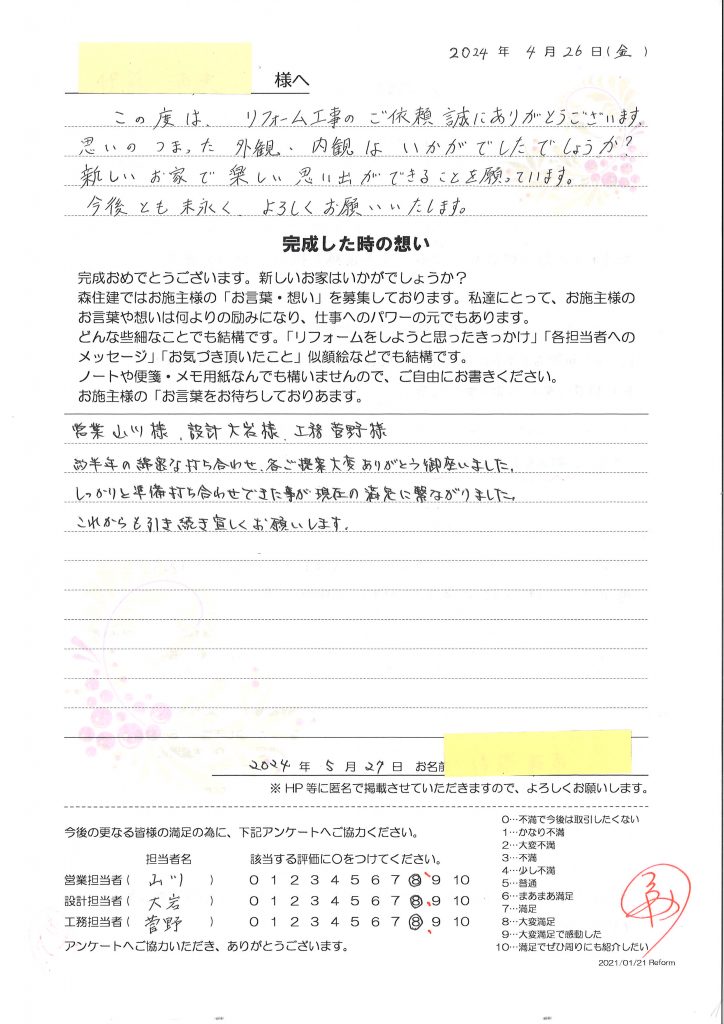 2024 年 4 月 26 日(金)
様へ
この度は、リフォーム工事のご依頼誠にありがとうございます。
思いのつまった外観、内観はいかがでしたでしょうか?
新しいお家で楽しい思い出ができることを願っています。
今後とも末永く、よろしくお願いいたします。
完成した時の想い
完成おめでとうございます。新しいお家はいかがでしょうか?
森住建ではお施主様の「お言葉・想い」を募集しております。私達にとって、お施主様の
お言葉や想いは何よりの励みになり、仕事へのパワーの元でもあります。
どんな些細なことでも結構です。「リフォームをしようと思ったきっかけ」「各担当者への
メッセージ」「お気づき頂いたこと」似顔絵などでも結構です。
ノートや便箋・メモ用紙なんでも構いませんので、ご自由にお書きください。
お施主様の「お言葉をお待ちしておりあます。
営業 山川様、設計 大岩様、工務 菅野様
約半年の綿密な打ち合わせ、各ご提案大変ありがとう御座いました。
しっかりと準備打ち合わせできた事が現在の満足に繋がりました。
これからも引き続き宜しくお願いします。
2024 年 5 月 27 日 お名前
※HP等に匿名で掲載させていただきますので、よろしくお願いします。
今後の更なる皆様の満足の為に、下記アンケートへご協力ください。
担当者名 該当する評価に○をつけてください。
営業担当者( 山川 ) 0 1 2 3 4 5 6 7 8 9 10
設計担当者( 大岩 ) 0 1 2 3 4 5 6 7 8 9 10
工務担当者( 菅野 ) 0 1 2 3 4 5 6 7 8 9 10
アンケートへご協力いただき、ありがとうございます。
0…不満で今後は取引したくない
1…かなり不満
2…大変不満
3…不満
4…少し不満
5…普通
6…まあまあ満足
7…満足
8…大変満足
9…大変満足で感動した
10…満足でぜひ周りにも紹介したい
2021/01/21 Reform